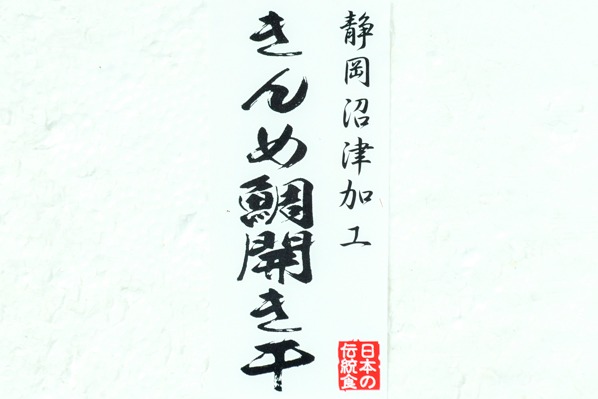 静岡沼津加工
きんめ鯛開き干
日本の
伝統食